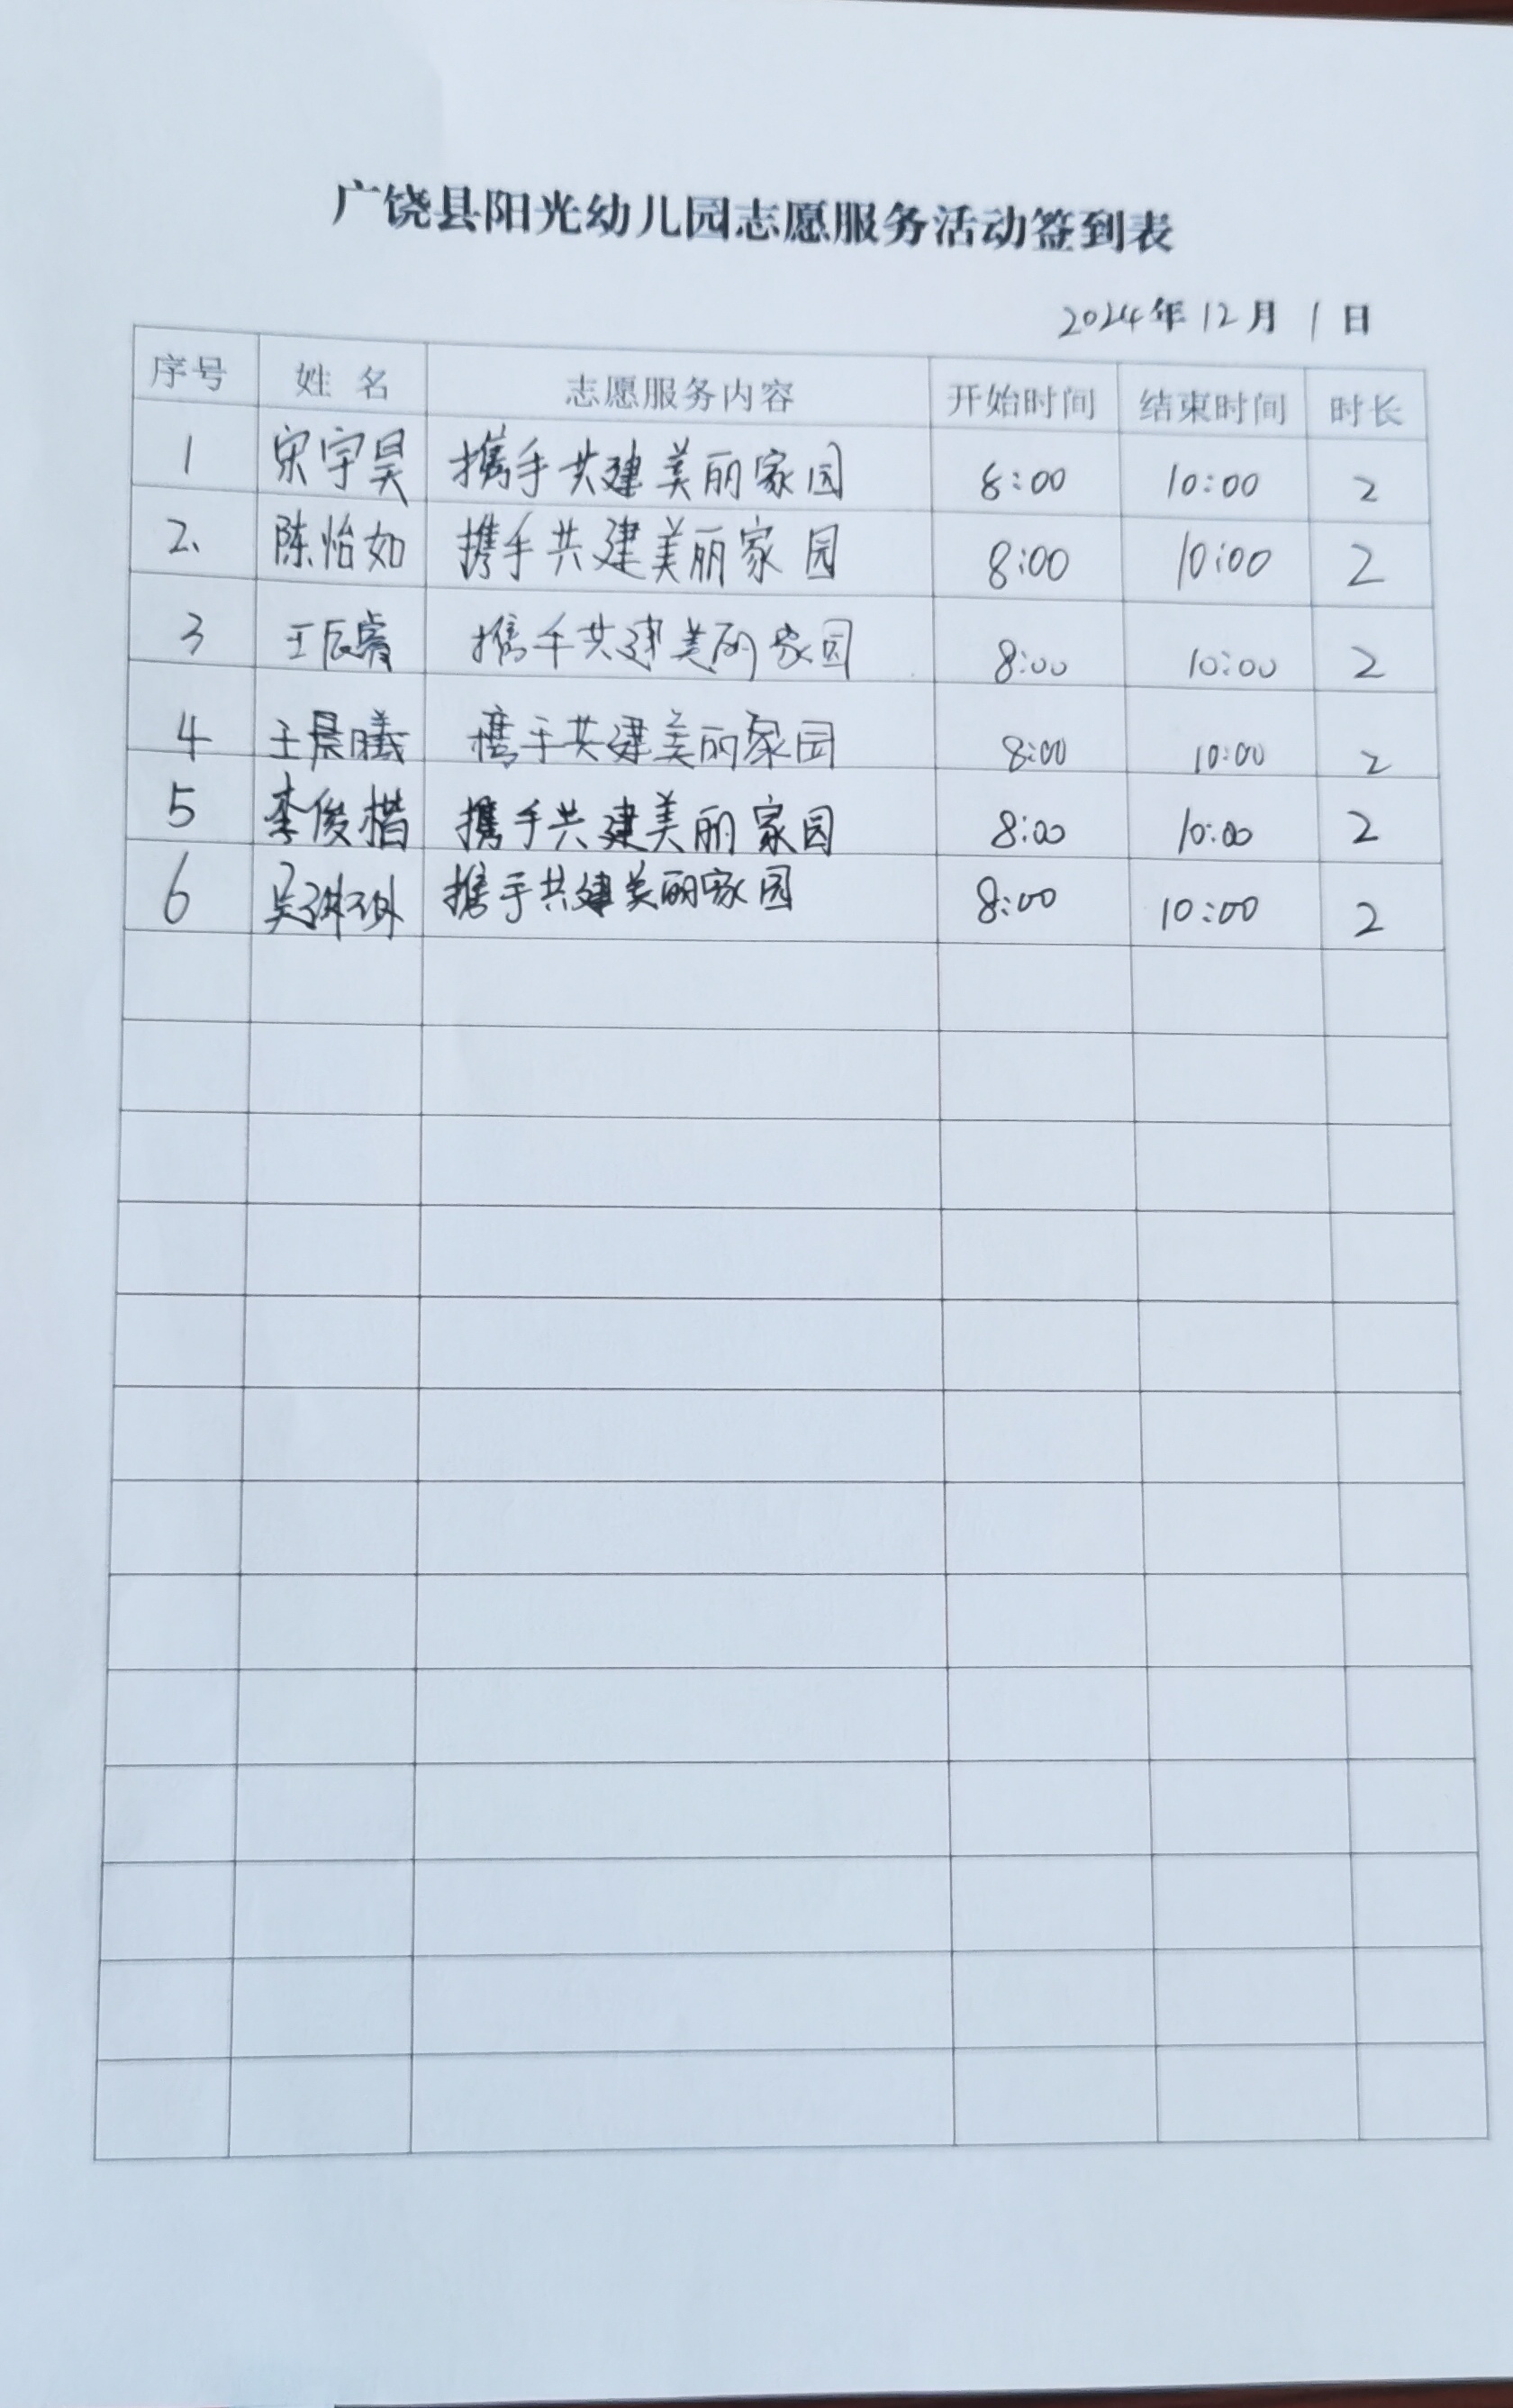 广饶县阳光幼儿园志愿服务活动签到表
2024年12月1日
序号 姓名 志愿服务内容 开始时间 结束时间 时长
1 宋宇昊 携手共建美丽家园 8:00 10:00 2
2、 陈怡如 携手共建美丽家园 8:00 10:00 2
3 王辰睿 携手共建美丽家园 8:00 10:00 2
4 王晨曦 携手共建美丽家园 8:00 10:00 2
5 李俊楷 携手共建美丽家园 8:00 10:00 2
6 携手共建美丽家园 8:00 10:00 2